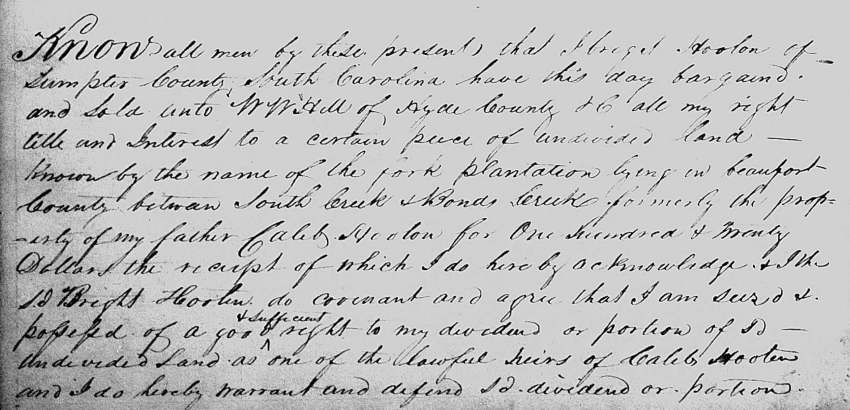 Know all men by these presents that I Briget Hooton of
Sumpter County, South Carolina have this day bargaind.
and Sold unto W W Hill of Hyde County &C all my right
title and Interest to a certain peece of undivided land —
known by the name of the fork plantation lying in beaufort
County betwan South Creek & Bonds Creek formerly the prop=
-erty of my father Caleb Hooton for One Hundred & Twenty
Dollars the receipt of which I do hereby acknowledge & I the
Sd Bright Hooten do covenant and agree that I am seizd &.
possessed of a good & sufficient right to my dividend or portion of Sd —
undevided Land as one of the lawful heirs of Caleb Hooten
and I do hereby warrant and defend Sd. dividend or portion.